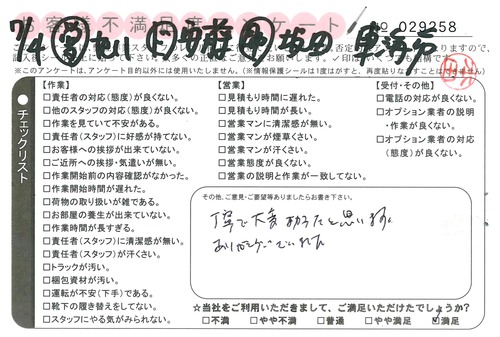 お客様不満足度アンケート
No 029258
※このアンケートは、アンケート目的以外には使用いたしません。(※情報保護シールは1度がはすと、再度貼りなおすことはできません)
チェックリスト
【作業】
□責任者の対応(態度)が良くない。
□他のスタッフの対応(態度)が良くない。
□作業を見ていて不安がある。
□責任者(スタッフ)に好感が持てない。
□お客様への挨拶が出来ていない。
□ご近所への挨拶・気遣いが無い。
□作業開始前の内容確認がなかった。
□作業開始時間が遅れた。
□荷物の取り扱いが雑である。
□お部屋の養生が出来ていない。
□作業時間が長すぎる。
□責任者(スタッフ)に清潔感が無い。
□責任者(スタッフ)が汗くさい。
□トラックが汚い。
□梱包資材が汚い。
□運転が不安(下手)である。
□靴下の履き替えをしてない。
□スタッフにやる気がみられない。
【営業】
□見積もり時間に遅れた。
□見積もり時間が長い。
□営業マンに清潔感が無い。
□営業マンが煙草くさい。
□営業マンが汗くさい。
□営業態度が良くない。
□営業の説明と作業が一致してない。
【受付・その他】
□電話の対応が良くない。
□オプション業者の説明
・作業が良くない。
□オプション業者の対応
(態度)が良くない。
その他、ご意見・ご要望等ありましたらお書き下さい。
丁寧で大変助かったと思います。
ありがとうございました
☆当社をご利用いただきまして、ご満足いただけたでしょうか?
□不満 □やや不満 □普通 □やや満足 ☑満足